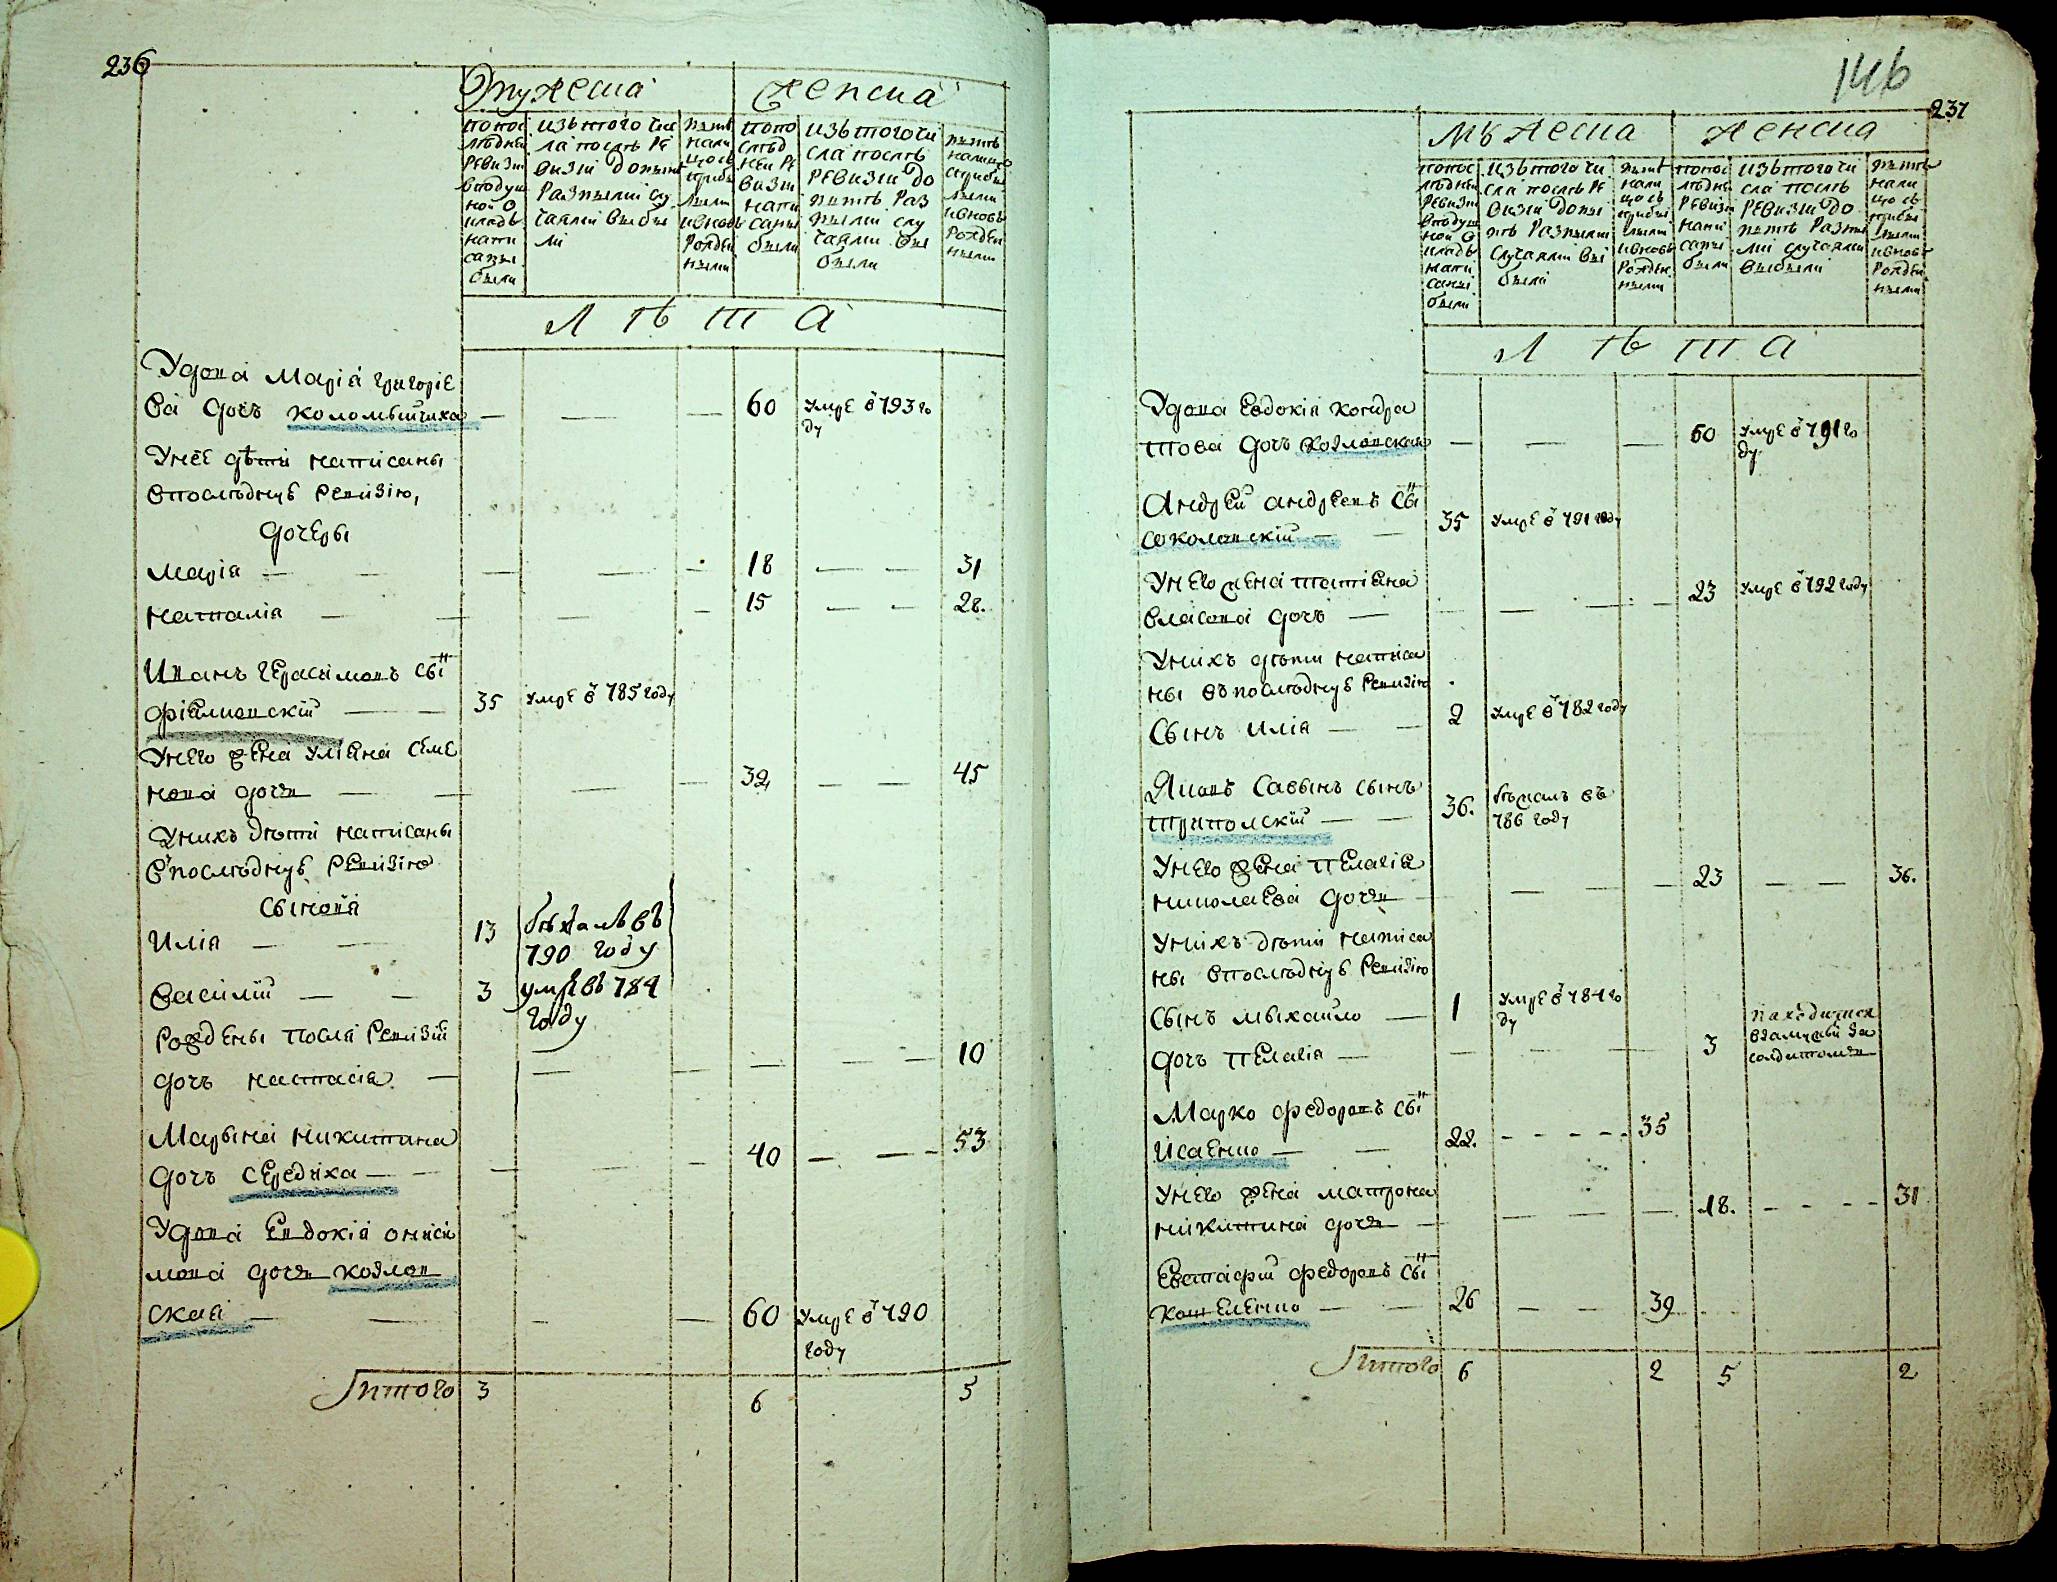 236
Мужеска
Женска
попос
лѣдней
ревизии
вподуш
ной о
кладъ
напи
саны
были
изъ того чис
ла послѣ ре
визии допынѣ
разными слу
чаями выбы
ли
нынѣ
нали
цо съ
прибы
лыми
ивновь
рожден
ными
попо
слѣд
ней ре
визии
напи
саны
были
изъ того чи
сла послѣ
ревизии до
нынѣ раз
ными слу
чаями вы
были
нынѣ
налицо
сприбы
лыми
ивновь
рожден
ными
Л ѣ т а
Удова Марія григорїе
ва дочъ коломыйчиха — — — 60 умре в 793 го
ду
Унее дѣти написаны
впослѣднуѣ ревизію,
дочеры
марія — — — — — 18 — — 31
наталія — — — — 15 — — 28.
Иванъ герасимовъ сынъ
фіялковскій — — 35 умре в 785 году
Унего жена уліяна семе
нова дочъ — — — — 32 — — 45
Унихъ дѣти написаны
впослѣднуѣ ревизію
сынова
илія — — 13 бѣжалъ въ
790 году
василій — — 3 умре въ 784
году
рождены посля ревизій
дочъ настасія — — — — — — 10
Марына никитина
дочъ середиха — — — — — 40 — — 53
Удова Евдокія ониси
мова дочъ козлов
ская — — — — 60 умре в 790
году
Итого 3 6 5
146
237
Мужеска
Женска
попос
лѣдней
ревизии
вподуш
ной о
кладъ
напи
саны
были
изъ того чи
сла послѣ ре
визии допы
нѣ разными
случаями вы
были
нынѣ
нали
цо съ
прибы
лыми
ивновь
рожден
ными
попос
лѣдней
ревизии
напи
саны
были
изъ того чи
сла послѣ
ревизии до
нынѣ разны
ми случаями
выбыли
нынѣ
нали
цо съ
прибы
лыми
ивновь
рожден
ными
Л ѣ т а
Удова Евдокія кондра
това дочъ козловская — — — 60 умре в 791 го
ду
Андрей андреевъ сынъ
соколовскій — — 35 умре в 791 году
Унего жена татіяна
власова дочъ — — — — 23 умре в 792 году
Унихъ дѣти написа
ны въ послѣднуѣ ревизію
сынъ илія — — 2 умре в 782 году
Яковъ савынъ сынъ
трипольскій — — 36. бѣжалъ въ
786 году
Унего жена пелагія
николаева дочъ — — — — 23 — — 36.
Унихъ дѣти написа
ны впослѣднуѣ ревизію
сынъ михайло — 1 умре в 784 го
ду
дочъ пелагія — — — — 3 находится
взамужи за
солдатомъ
Марко федоровъ сынъ
исаенко — — 22. - - - - - 35
Унего жена матрона
никитина дочъ — — — — 18. - - - - 31
Евстафій федоровъ сынъ
кошеленко — — 26 — — 39
Итого 6 2 5 2